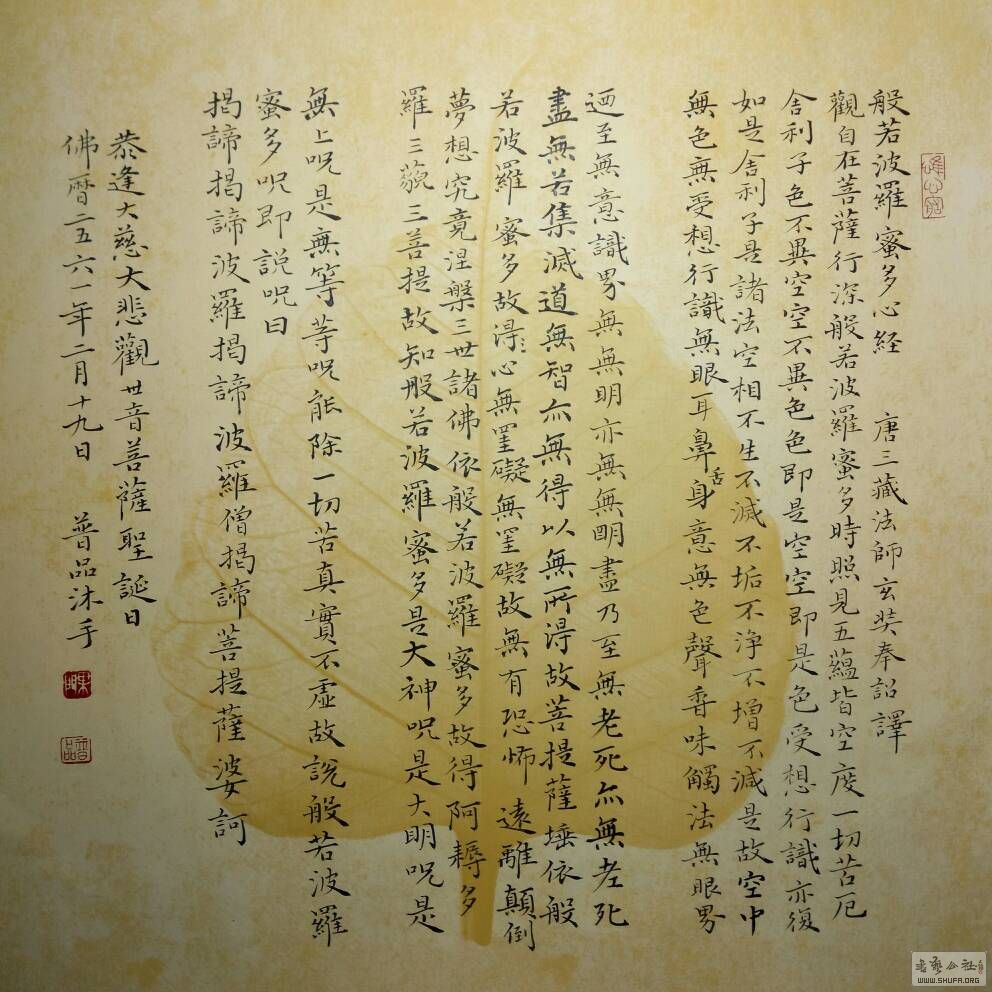 般若波羅蜜多心経 唐三藏法師玄奘奉詔譯
觀自在菩薩行深般若波羅蜜多時照見五蘊皆空度一切苦厄
舍利子色不異空空不異色色即是空空即是色受想行識亦復
如是舍利子是諸法空相不生不滅不垢不淨不增不減是故空中
無色無受想行識無眼耳鼻舌身意無色聲香味觸法無眼界
迺至無意識界無無明亦無無明盡乃至無老死亦無老死
盡無苦集滅道無智亦無得以無所得故菩提薩埵依般
若波羅蜜多故得心無罣礙無罣礙故無有恐怖遠離顛倒
夢想究竟涅槃三世諸佛依般若波羅蜜多故得阿耨多
羅三藐三菩提故知般若波羅蜜多是大神呪是大明呪是
無上呪是無等等呪能除一切苦真實不虛故說般若波羅
蜜多呪即説呪曰
揭諦揭諦波羅揭諦波羅僧揭諦菩提薩婆訶
恭逢大慈大悲觀世音菩薩聖誕日
佛曆二五六一年二月十九日 普品沐手
普品
WWW.SHUFA.ORG